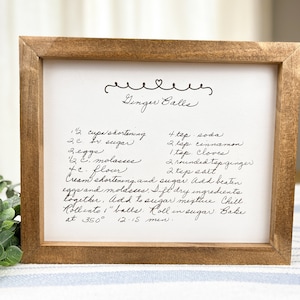 Ginger Balls
1 1/2 cups shortening
2 c. sugar
2 eggs
1/2 c. molasses
4 c. flour
4 tsp soda
2 tsp cinnamon
1 tsp cloves
2 rounded tsp ginger
2 tsp salt
Cream shortening and sugar. Add beaten
eggs and molasses. Sift dry ingredients
together. Add to sugar mixture. Chill
Roll into 1" balls. Roll in sugar. Bake
at 350° 12-15 min.